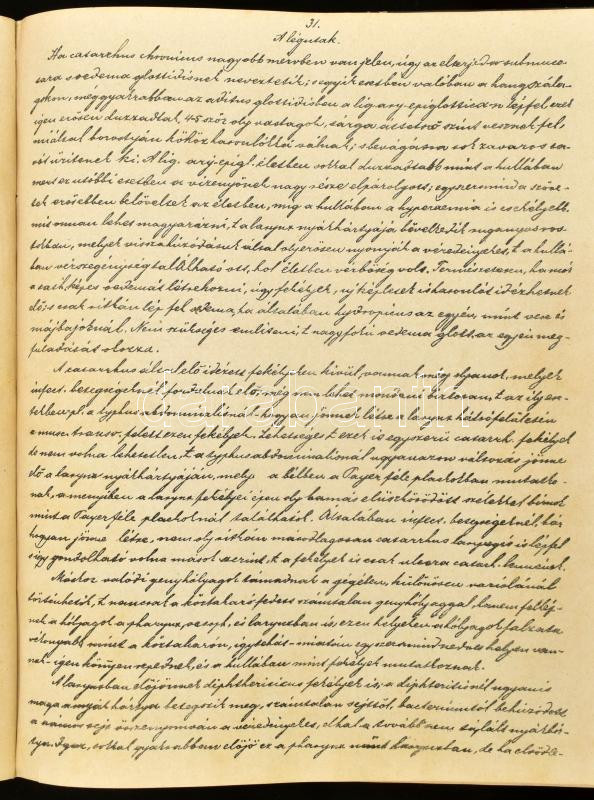 31.
A légutak.
Ha catarrhus chronicus nagyobb mérvben van jelen, úgy az elterjed a submuco-
sára s oedema glottidisnek neveztetik; s egyik esetben valóban a hangszála-
gokon, még gyakrabban az aditus glottidisben a lig. ary-epiglottican lép fel, ezek
igen erősen duzzadtak, 4-5 ször oly vastagok, sárga színt vesznek fel,
miáltal hasonlókká válnak; s bevágásra sok zavaros sa-
vót ürítenek ki. A lig. ary. epigl. életben sokkal duzzadtabb mint a hullában
mert az utóbbi esetben a vizenyőnek nagy része elpárolgott; egyszersmind a szöve-
tek erősebben belöveltek az életben, míg a hullában a hyperaemia is csekélyebb
mit onnan lehet magyarázni, t. a larynx nyákhártyája bővelkedik ruganyos ros-
tokban, melyek visszahúzódásuk által oly erősen nyomják a véredényeket, t. a hullá-
ban vérszegénység található ott, hol életben vérbőség volt. Természetesen, ha már
a catarrh. képes oedemát létrehozni, úgy fekélyek, új képletek is hasonlót idézhetnek
elő; s csak ritkán lép fel oedema, ha általában hydropicus az egyén, mint vese és
májbajoknál. Nem szükséges említeni, t. nagyfokú oedema glott. az egyén meg-
fuladását okozza.
A catarrhus által előidézett fekélyeken kívül, vannak még olyanok, melyek
infect. betegségeknél fordulnak elő; még meg lehet mondani biztosan, t. az ilyen
pl. a typhus abdominalisnál - hogyan jönnek létre a larynx hátsó felületén
a musc. transv. felett ezen fekélyek. Lehetséges t. ezek is egyszerű catarrh. fekélyek
de nem volna lehetetlen t. a typhus abdominalisnál ugyanazon változás jönne
elő a larynx nyákhártyáján, mely a bélben a Payer féle plackokban mutatko-
nak, a mennyiben a larynx fekélyei épen oly hamás elüszkösödött szélekkel bírnak
mint a Payer féle plackoknál található. Általában infect. betegségeknél, bár
hogyan jönne létre, nem oly ritkán másodlagosan catarrhus laryngis is lép fel
s így gondolható volna mások szerint, t. a fekélyek is csak ulcera catarrh. lennének.
Máskor valódi genyhólyagok támadnak a gégében, különösen variolánál
történhetik, t. nemcsak a köztakaró fedett számtalan genyhólyaggal, hanem fellép-
nek a hólyagok a pharynx, oesoph, és larynxban is; ezen helyeken a hólyagok falzata
vékonyabb mint a köztakarón, így ... miután egyszersmind nedves helyen van-
nak - igen könnyen repednek, és a hullában mint fekélyek mutatkoznak.
A larynxban előjönnek diphtheriticus fekélyek is; a diphteritisnél ugyanis
maga a nyákhártya betegszik meg, számtalan sejttől, bacteriumtól behúzódott
a számos sejt összenyomván a véredényeket, elhal a tovább nem táplált nyákhár-
tya. Igaz, sokkal gyakrabban elöjő ez a pharynx mint larynxban, de ha elsődle-
darabanth